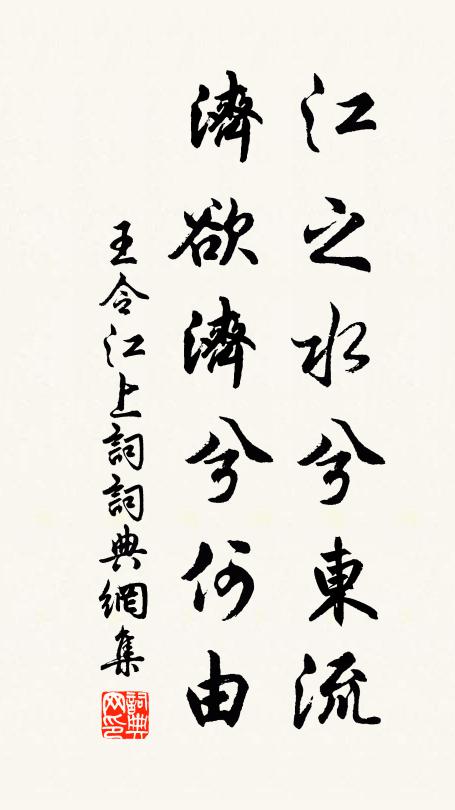 江之水兮東流
濟欲濟兮何由
王令江上詞詞典網集
詞典网印